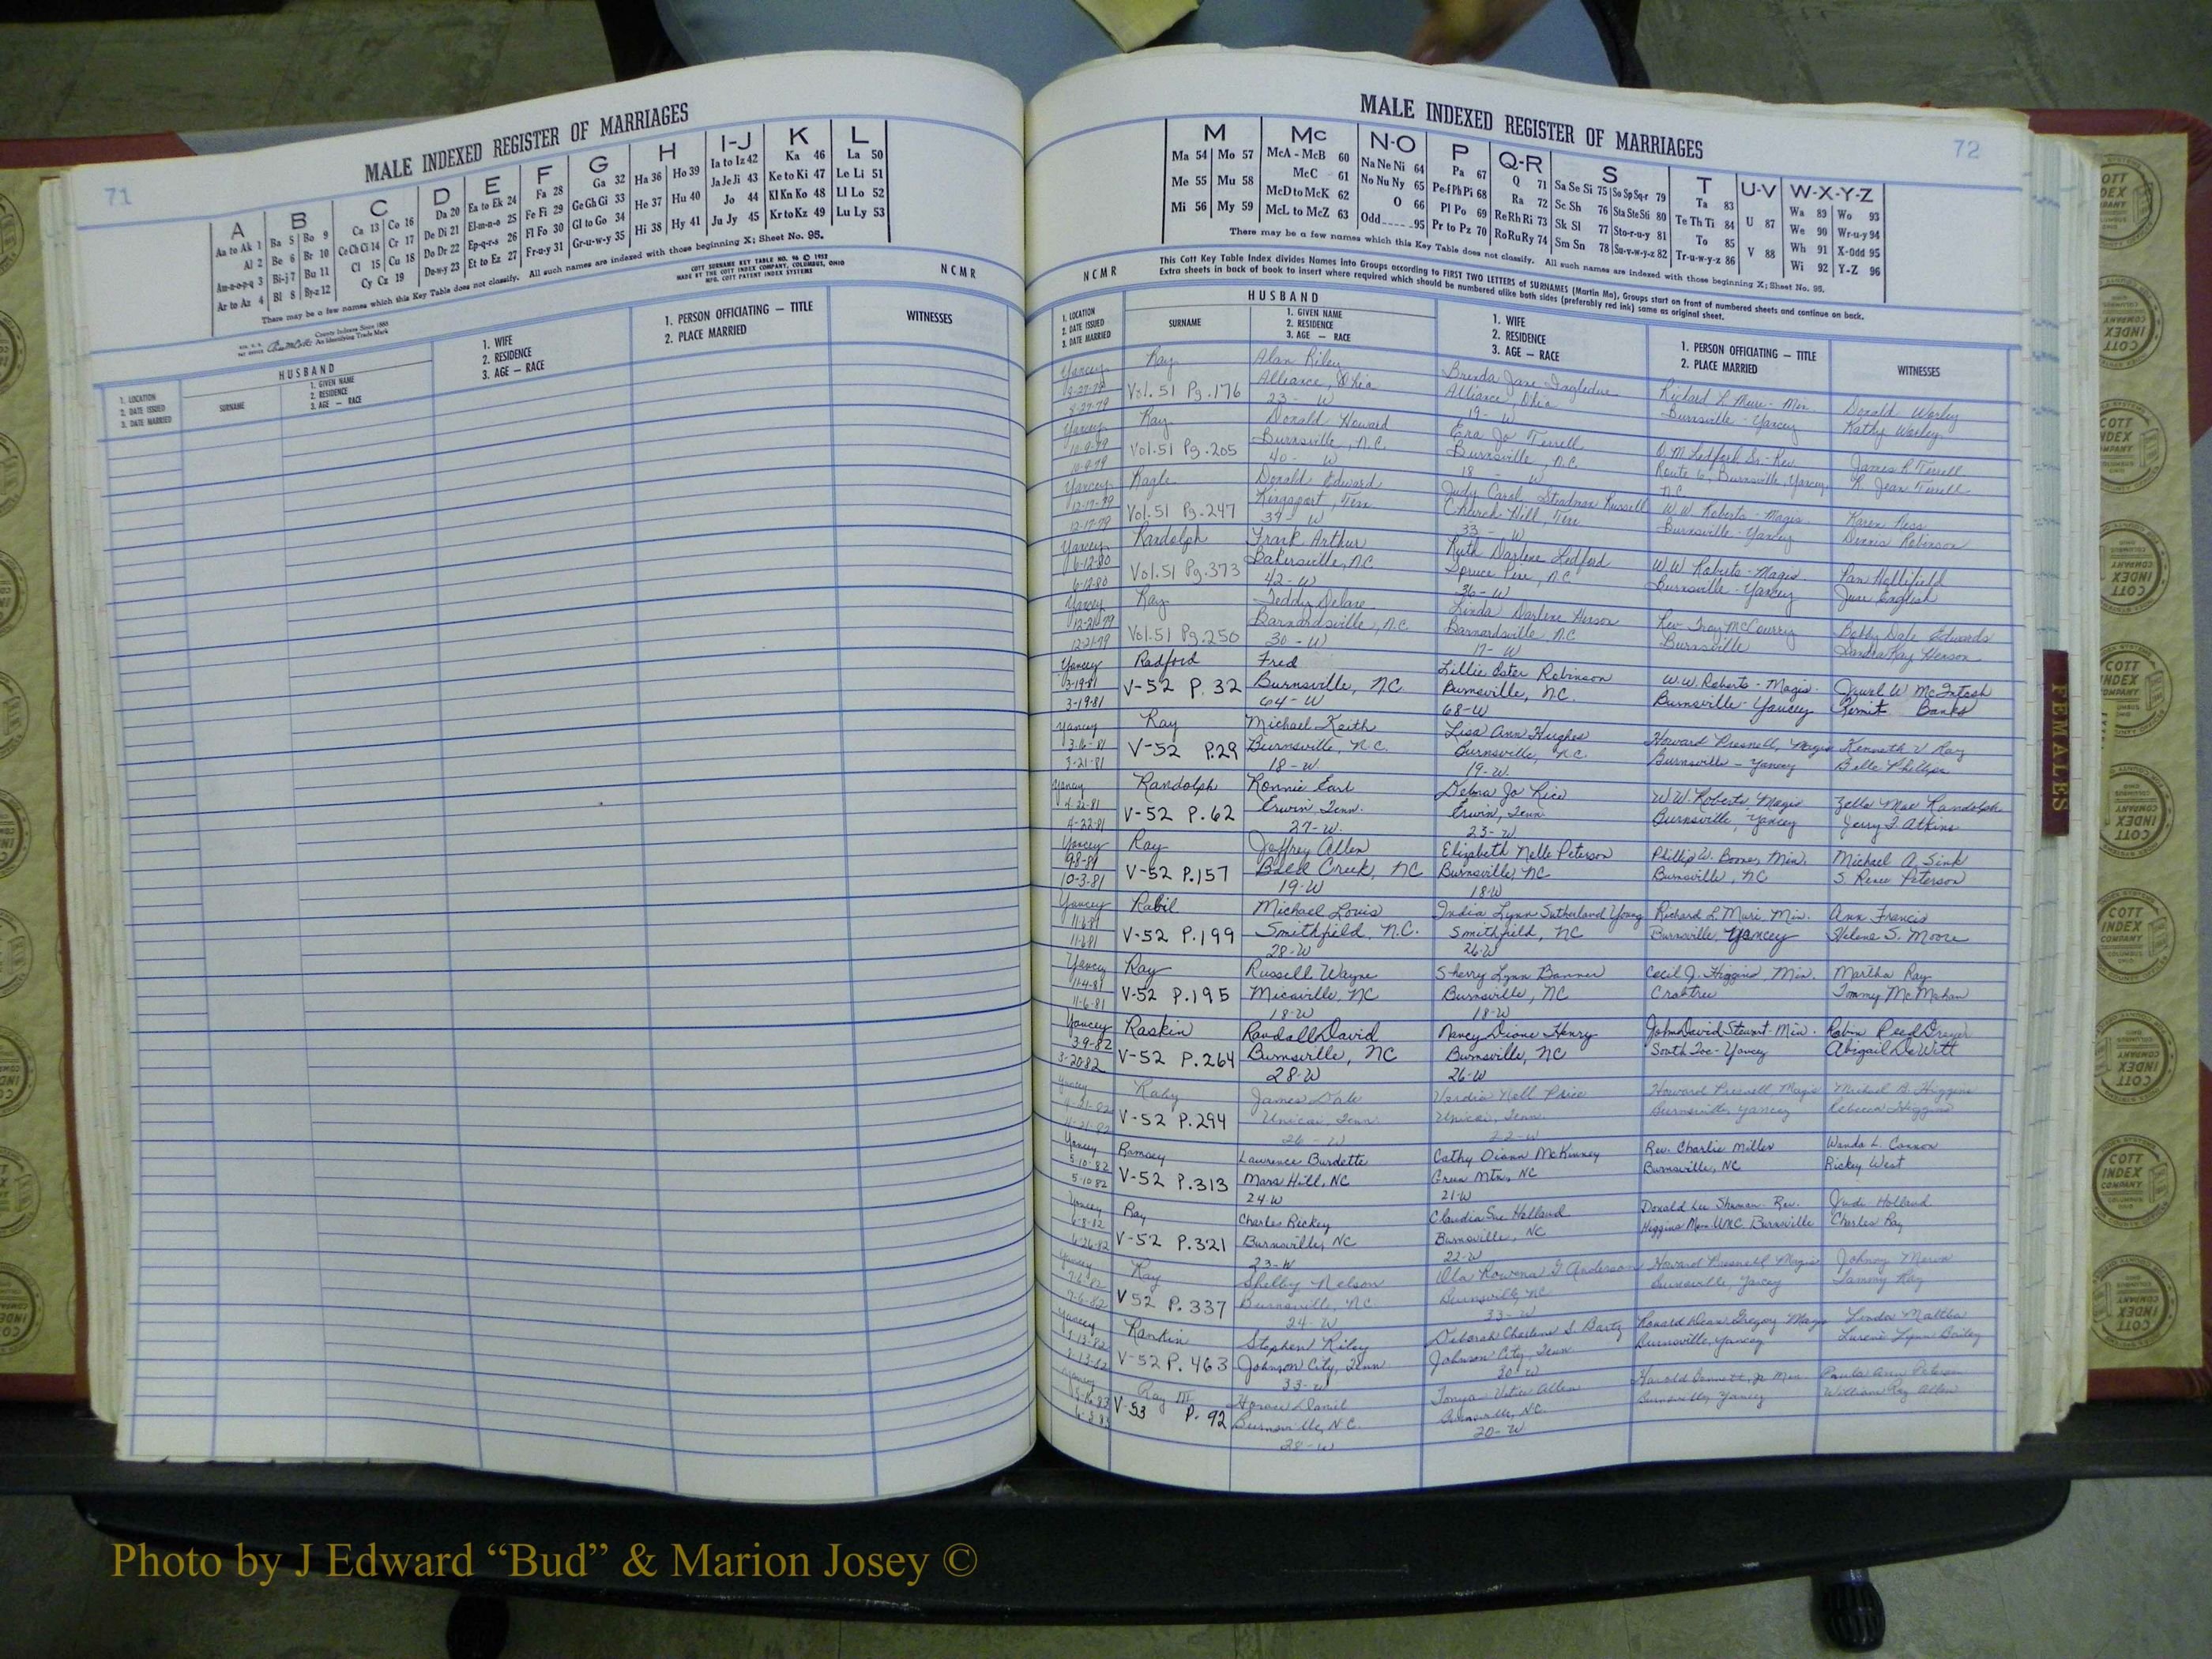 71
MALE INDEXED REGISTER OF MARRIAGES
A B C D E F G H I-J K L
Aa to Ak 1 Ba 5 Bo 9 Ca 13 Co 16 Da 20 Ea to Ek 24 Fa 28 Ga 32 Ha 36 Ho 39 Ia to Iz 42 Ka 46 La 50
Al 2 Be 6 Br 10 Ce Ch Ci 14 Cr 17 De Di 21 El-m-n-o 25 Fe Fi 29 Ge Gh Gi 33 He 37 Hu 40 Ja Je Ji 43 Ke to Ki 47 Le Li 51
Am-n-o-p-q 3 Bi-j 7 Bu 11 Cl 15 Cu 18 Do Dr 22 Ep-q-r-s 26 Fl Fo 30 Gl to Go 34 Hi 38 Hy 41 Jo 44 Kl Kn Ko 48 Ll Lo 52
Ar to Az 4 Bl 8 By-z 12 Cy Cz 19 De-w-y 23 Et to Ez 27 Fr-u-y 31 Gr-u-w-y 35 Ju Jy 45 Kr to Kz 49 Lu Ly 53
There may be a few names which this Key Table does not classify. All such names are indexed with those beginning X; Sheet No. 95.
County Indexes Since 1888
An Identifying Trade Mark
COTT SURNAME KEY TABLE NO. 96 © 1952
MADE BY THE COTT INDEX COMPANY, COLUMBUS, OHIO
MFG. COTT PATENT INDEX SYSTEMS
NCMR
1. LOCATION
2. DATE ISSUED
3. DATE MARRIED
HUSBAND
SURNAME
1. GIVEN NAME
2. RESIDENCE
3. AGE — RACE
1. WIFE
2. RESIDENCE
3. AGE — RACE
1. PERSON OFFICIATING — TITLE
2. PLACE MARRIED
WITNESSES
MALE INDEXED REGISTER OF MARRIAGES
72
M Mc N-O P Q-R S T U-V W-X-Y-Z
Ma 54 Mo 57 McA - McB 60 Na Ne Ni 64 Pa 67 Q 71 Sa Se Si 75 So Sp Sq-r 79 Ta 83 U 87 Wa 89 Wo 93
Me 55 Mu 58 McC 61 No Nu Ny 65 Pe-f Ph Pi 68 Ra 72 Sc Sh 76 Sta Ste Sti 80 Te Th Ti 84 We 90 Wr-u-y 94
Mi 56 My 59 McD to McK 62 O 66 Pl Po 69 Re Rh Ri 73 Sk Sl 77 Sto-r-u-y 81 To 85 V 88 Wh 91 X-Odd 95
McL to McZ 63 Odd 95 Pr to Pz 70 Ro Ru Ry 74 Sm Sn 78 Su-v-w-y-z 82 Tr-u-w-y-z 86 Wi 92 Y-Z 96
There may be a few names which this Key Table does not classify. All such names are indexed with those beginning X; Sheet No. 95.
NCMR
This Cott Key Table Index divides Names into Groups according to FIRST TWO LETTERS of SURNAMES (Martin Ma), Groups start on front of numbered sheets and continue on back.
Extra sheets in back of book to insert where required which should be numbered alike both sides (preferably red ink) same as original sheet.
1. LOCATION
2. DATE ISSUED
3. DATE MARRIED
HUSBAND
SURNAME
1. GIVEN NAME
2. RESIDENCE
3. AGE — RACE
1. WIFE
2. RESIDENCE
3. AGE — RACE
1. PERSON OFFICIATING — TITLE
2. PLACE MARRIED
WITNESSES
Yancey Ray Alan Riley Brenda Jane Ingledue Richard L. Muri - Min. Donald Worley
8-27-79 Vol. 51 Pg. 176 Alliance, Ohio Alliance, Ohio Burnsville - Yancey Kathy Worley
8-27-79 23 - W 19 - W
Yancey Ray Donald Howard Jo Terrell O. M. Ledford Sr. - Rev. James R. Terrell
10-9-79 Vol. 51 Pg. 205 Burnsville, N.C. Burnsville, N.C. Route 6, Burnsville, Yancey R. Jean Terrell
10-9-79 40 - W 18 W NC
Yancey Ragle Donald Edward Judy Carol Steadman Russell W.W. Roberts - Magis. Karen Hess
12-17-79 Vol. 51 Pg. 247 Kingsport, Tenn Church Hill, Tenn Burnsville - Yancey Dennis Robinson
12-17-79 39 - W 33 - W
Yancey Randolph Frank Arthur Ruth Darlene Ledford W.W. Roberts - Magis. Pam Hollifield
6-12-80 Vol. 51 Pg. 373 Bakersville, NC Spruce Pine, N.C. Burnsville - Yancey June English
6-12-80 42 - W 36 - W
Yancey Ray Teddy Delane Linda Darlene Henson Rev Troy McCourry Bobby Dale Edwards
12-21-79 Vol. 51 Pg. 250 Barnardsville, N.C. Barnardsville N.C. Burnsville Sandra Kay Henson
12-21-79 30 - W 17 - W
Yancey Radford Fred Lillie Ester Robinson W.W. Roberts - Magis. Jewel W McIntosh
3-19-81 V-52 P. 32 Burnsville, NC Burnsville, NC. Burnsville - Yancey Kermit Banks
3-19-81 64 - W 68-W
Yancey Ray Michael Keith Lisa Ann Hughes Howard Presnell, Magis Kenneth V Ray
3-16-81 V-52 P.29 Burnsville, N.C. Burnsville, N.C. Burnsville - Yancey Belle Phillips
3-21-81 18 - W. 19 - W.
Yancey Randolph Ronnie Earl Debra Jo Rice W.W. Roberts, Magis Zella Mae Randolph
4-22-81 V-52 P. 62 Erwin Tenn. Erwin, Tenn Burnsville, Yancey Jerry J. Atkins
4-22-81 27 - W. 23 - W
Yancey Ray Jeffrey Allen Elizabeth Nelle Peterson Phillip W. Boone, Min. Michael A. Sink
9-8-81 V-52 P.157 Bald Creek, NC Burnsville, NC Burnsville, NC S. Renee Peterson
10-3-81 19-W 18-W
Yancey Rabil Michael Louis India Lynn Sutherland Young Richard L. Muri Min. Ann Francis
11-6-81 V-52 P.199 Smithfield, N.C. Smithfield, NC Burnsville, Yancey Helene S. Moore
11-6-81 28-W 26-W
Yancey Ray Russell Wayne Sherry Lynn Banner Cecil J. Higgins Min. Martha Ray
11-4-81 V-52 P.195 Micaville, NC Burnsville, NC Crabtree Tommy McMahan
11-6-81 18-W 18-W
Yancey Raskin Randall David Nancy Diane Henry John David Stewart. Min. Robin Reed Dreyer
3-9-82 V-52 P.264 Burnsville, NC Burnsville, NC South Toe - Yancey Abigail DeWitt
3-20-82 28-W 26-W
Yancey Raby James Dale Verdia Nell Price Howard Presnell Magis Michael B. Higgins
4-21-82 V-52 P.294 Unicoi, Tenn Unicoi, Tenn. Burnsville, Yancey Rebecca Higgins
4-21-82 26 - W 22 - W
Yancey Ramsey Lawrence Burdette Cathy Diann McKinney Rev. Charlie Miller Wanda L. Cannon
5-10-82 V-52 P.313 Mars Hill, NC Green Mtn, NC Burnsville, NC Rickey West
5-10-82 24 W 21-W
Yancey Ray Charles Rickey Claudia Sue Holland Donald Lee Shuman - Rev. Judi Holland
6-8-82 V-52 P.321 Burnsville, NC Burnsville, NC Higgins Mem. UMC. Burnsville Charles Ray
6-26-82 23-W 22-W
Yancey Ray Shelby Nelson Ola Rowena G Anderson Howard Presnell Magis Johnny
7-6-82 V 52 P. 337 Burnsville, NC Burnsville, NC Burnsville, Yancey Tammy Ray
7-6-82 24 - W 33 - W
Yancey Rankin Stephen Riley Deborah Charlene S. Bartz Ronard Dean Gregory Magis Linda Maltba
V-52 P. 463 Johnson City, Tenn Johnson City, Tenn Burnsville, Yancey Lynn Bailey
33 - W 30 - W
Yancey Ray III Horace Daniel Tonya Allen Harold Bennett, Jr Min. Paula Ann Peterson
V-53 P. 92 Burnsville, N.C. Burnsville, NC. Burnsville, Yancey William Ray Allen
28 - W 20 - W
FEMALES
COTT
INDEX
COMPANY
Photo by J Edward “Bud” & Marion Josey ©